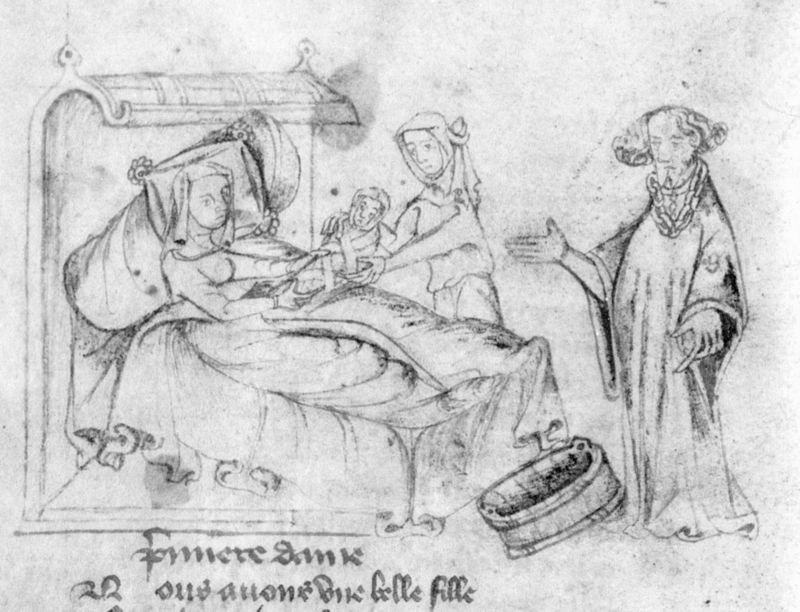 Premiere dame
Nous auons vne belle fille